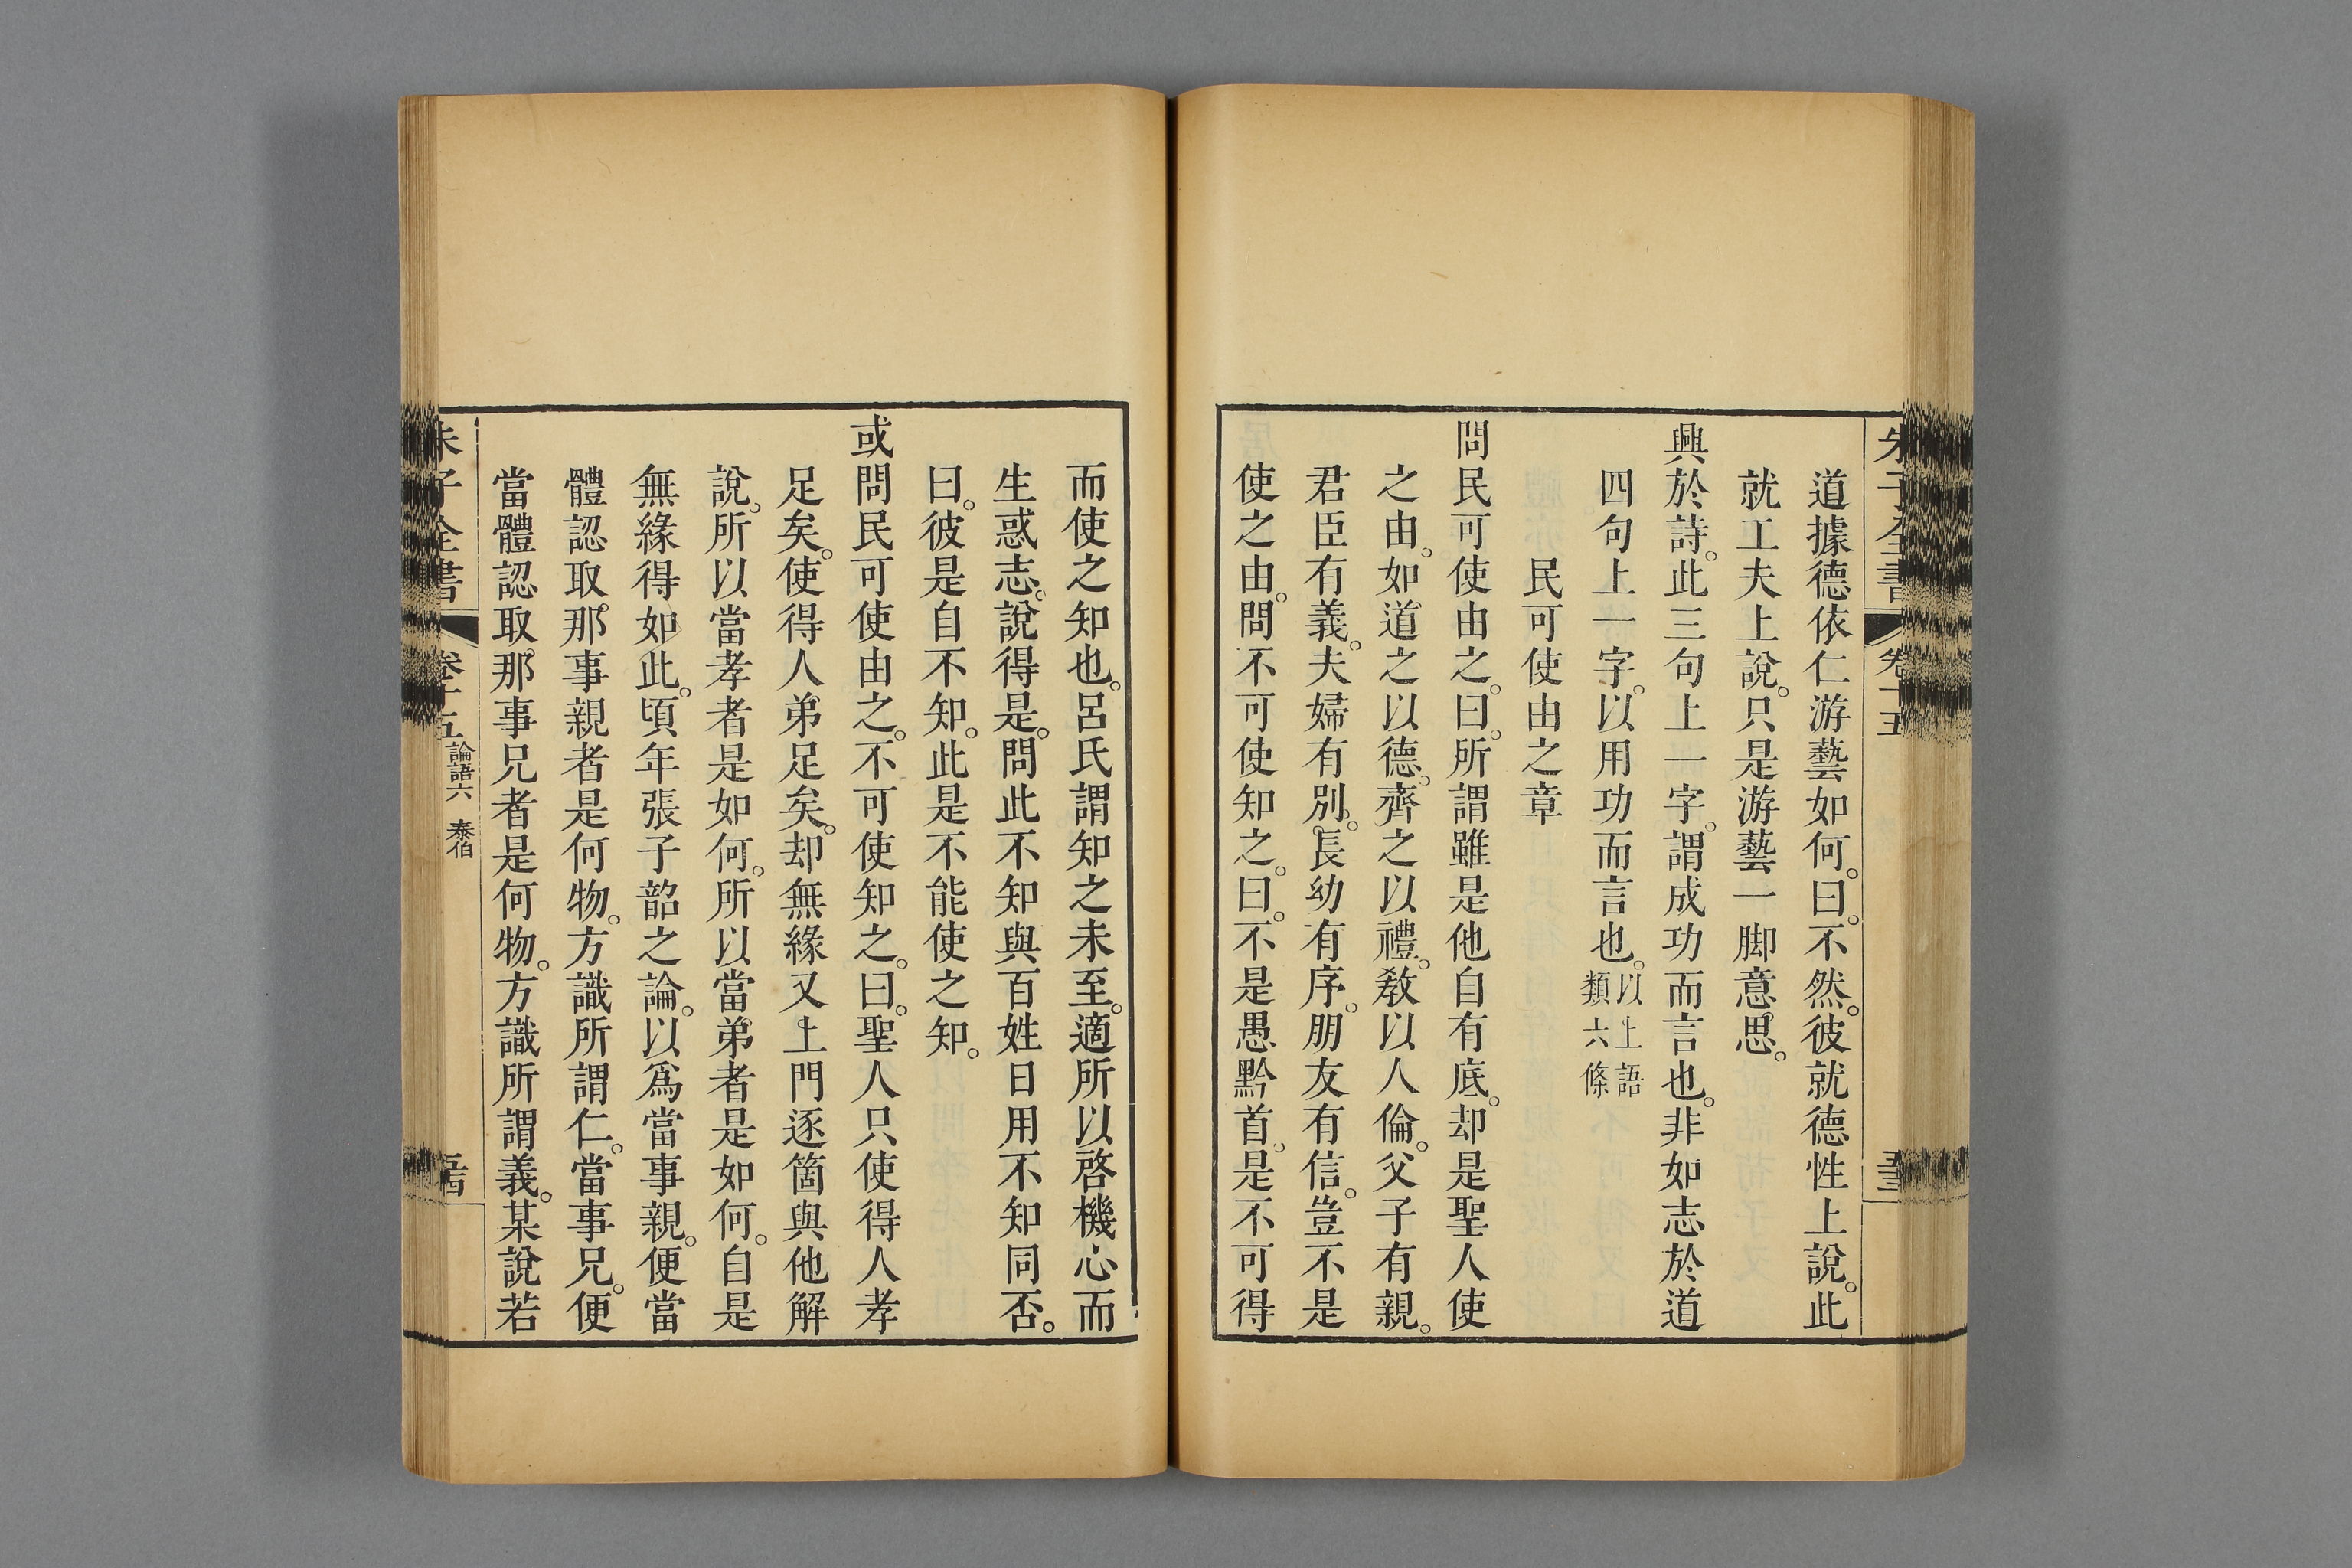 朱子全書 卷十五
道據德依仁游藝如何。曰。不然。彼就德性上說。此
就工夫上說。只是游藝一脚意思。
興於詩。此三句上一字。謂成功而言也。非如志於道
四句上一字。以用功而言也。以上語類六條
民可使由之章
問民可使由之。曰。所謂雖是他自有底。却是聖人使
之由。如道之以德。齊之以禮。敎以人倫。父子有親。
君臣有義。夫婦有別。長幼有序。朋友有信。豈不是
使之由。問不可使知之。曰。不是愚黔首。是不可得
而使之知也。呂氏謂知之未至。適所以啓機心而
生惑志。說得是。問此不知與百姓日用不知同否。
曰。彼是自不知。此是不能使之知。
或問民可使由之。不可使知之。曰。聖人只使得人孝
足矣。使得人弟足矣。却無緣又上門逐箇與他解
說。所以當孝者是如何。所以當弟者是如何。自是
無緣得如此。頃年張子韶之論。以爲當事親。便當
體認取那事親者是何物。方識所謂仁。當事兄。便
當體認取那事兄者是何物。方識所謂義。某說若
朱子全書 卷十五 論語六 泰伯